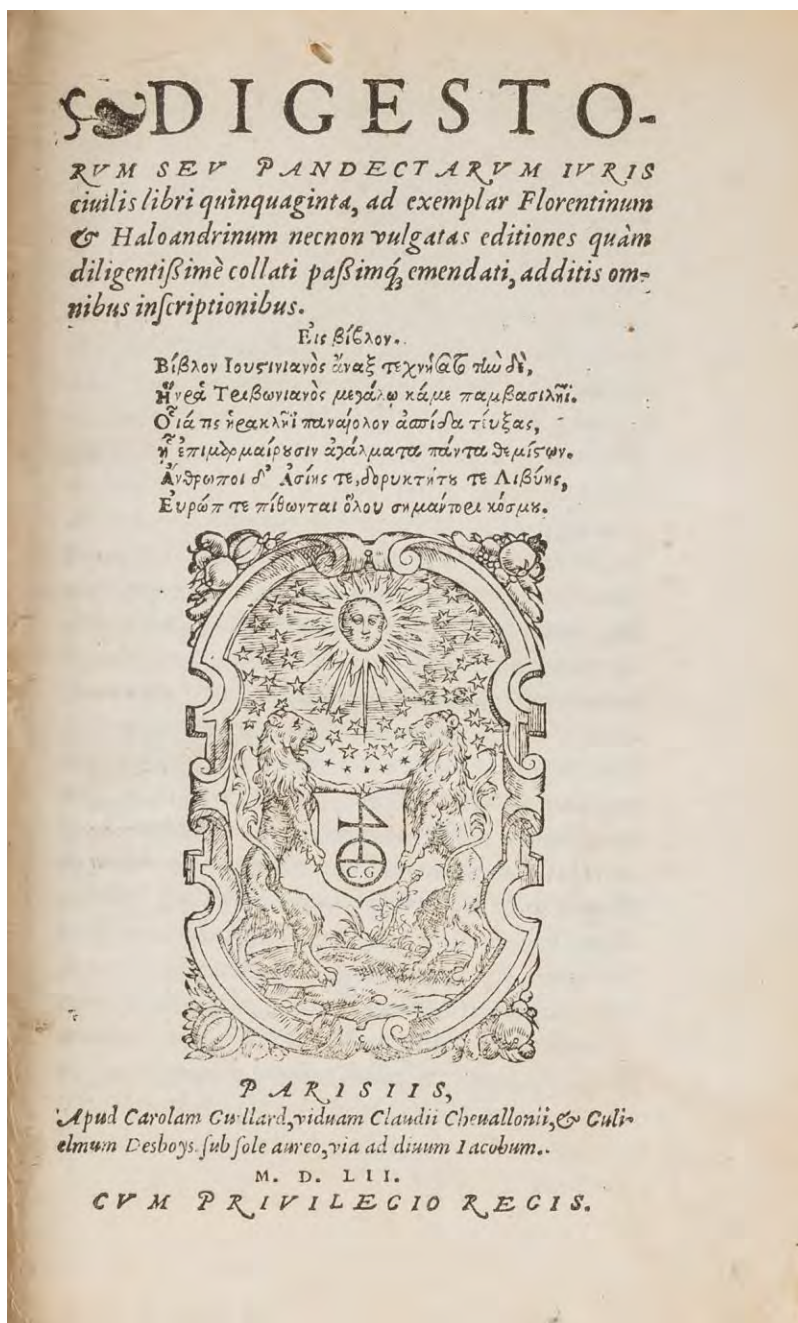 DIGESTO-
RVM SEV PANDECTARVM IVRIS
ciuilis libri quinquaginta, ad exemplar Florentinum
& Haloandrinum necnon vulgatas editiones quàm
diligentißimè collati paßimq́; emendati, additis om-
nibus inſcriptionibus.
Εἰς βίβλον.
Βίβλον Ιουστινιανὸς ἄναξ τεχνήσατο τὼ δὲ,
Ἥν ῥὰ Τριβωνιανὸς μεγάλῳ κάμε παμβασιλῆϊ.
Οἷά τις ἡρακλῆϊ παναίολον ἀσπίδα τεύξας,
ἧ ἐπιμαρμαίρουσιν ἀγάλματα πάντα θεμίστων.
Ἄνθρωποι δ' Ἀσίης τε, δορυκτήτου τε Λιβύης,
Εὐρώπ τε πίθωνται ὅλου σημάντορι κόσμου.
C.G
PARISIIS,
Apud Carolam Guillard, viduam Claudii Cheuallonii, & Guli-
elmum Desboys. ſub ſole aureo, via ad diuum Iacobum.
M. D. LII.
CVM PRIVILEGIO REGIS.